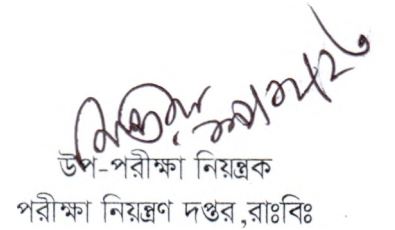 উপ-পরীক্ষা নিয়ন্ত্রক
পরীক্ষা নিয়ন্ত্রণ দপ্তর ,রাঃবিঃ